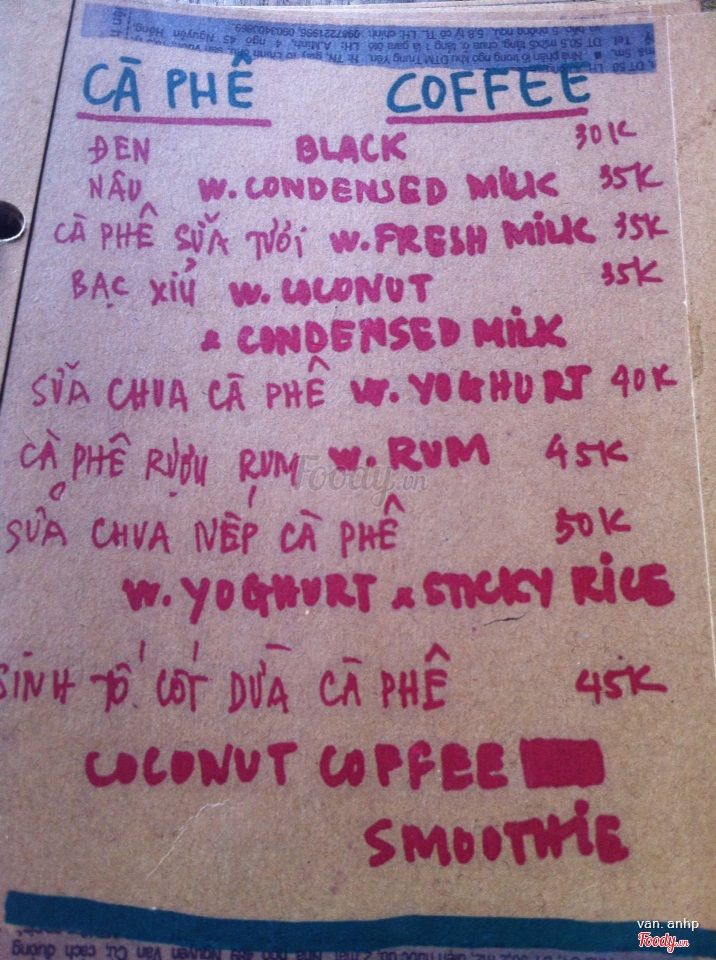 CÀ PHÊ COFFEE
ĐEN BLACK 30K
NÂU W. CONDENSED MILK 35K
CÀ PHÊ SỮA TƯƠI W. FRESH MILK 35K
BẠC XỈU W. COCONUT 35K
& CONDENSED MILK
SỮA CHUA CÀ PHÊ W. YOGHURT 40K
CÀ PHÊ RƯỢU RỤM W. RUM 45K
Foody.vn
SỬA CHUA NẾP CÀ PHÊ 50K
W. YOGHURT & STICKY RICE
SINH TỐ CỐT DỪA CÀ PHÊ 45K
COCONUT COFFEE
SMOOTHIE
van. anhp
Foody.vn